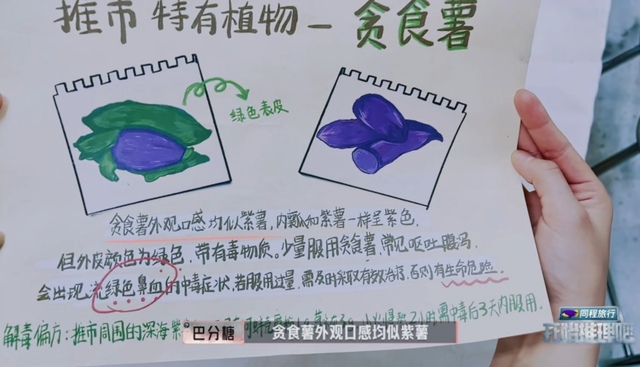 推市 特有植物 — 贪食薯
绿色表皮
贪食薯外观口感均似紫薯,内瓤和紫薯一样呈紫色,
但外皮颜色为绿色,带有毒物质。少量服用贪食薯,常见呕吐腹泻,
会出现流绿色鼻血的中毒症状,若服用过量,需及时采取有效治疗,否则有生命危险。
解毒偏方:推市周围的深海紫
需中毒后3天内服用.
巴分糖
贪食薯外观口感均似紫薯
同程旅行
开始推理吧